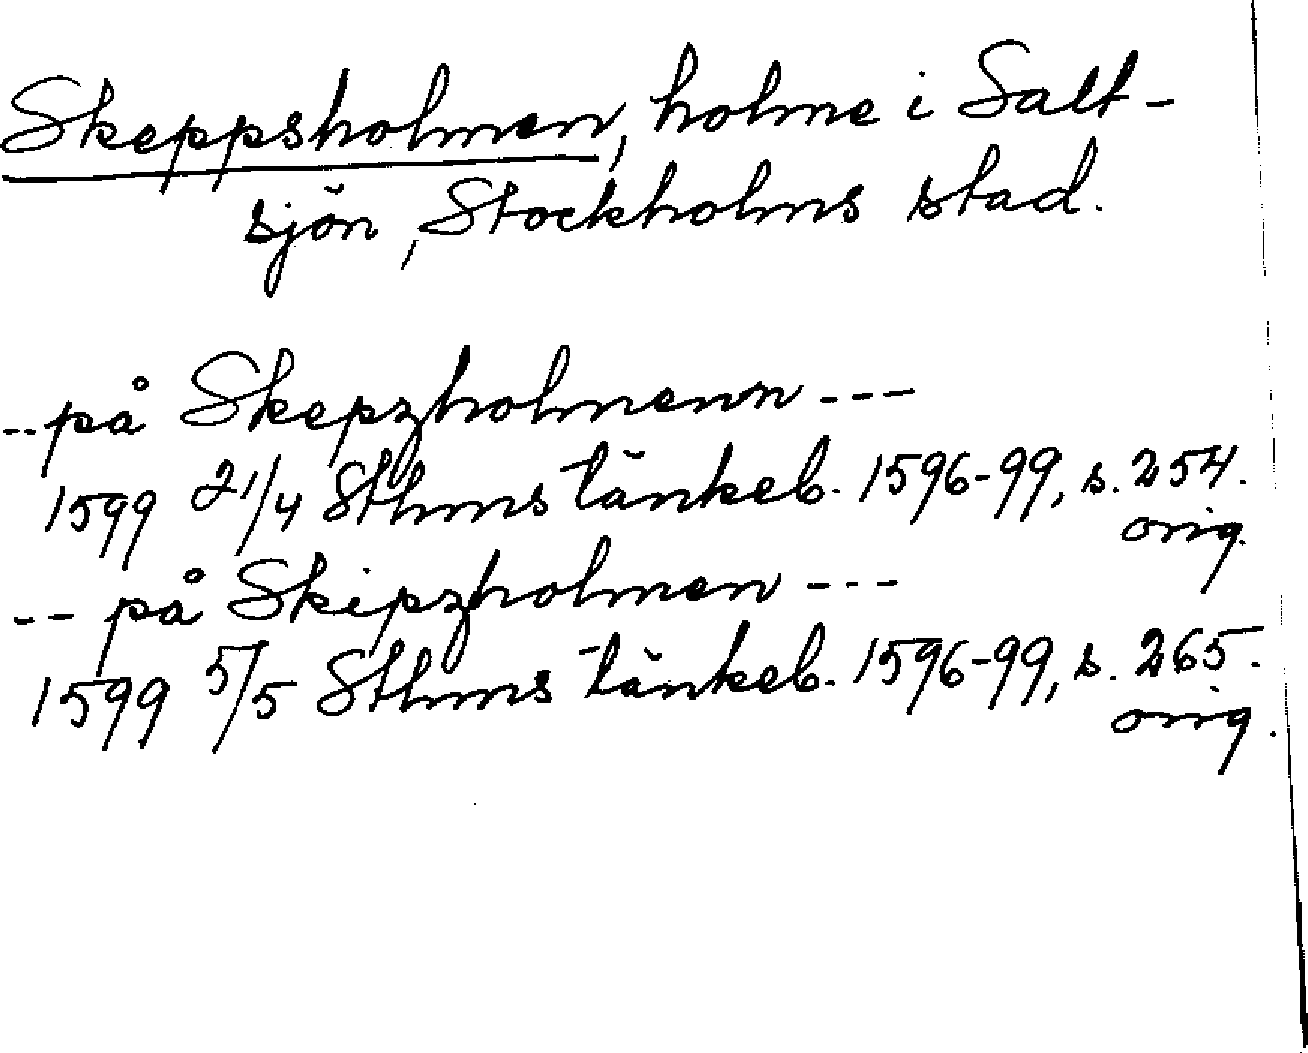 Skeppsholmen, holme i Salt-
sjön, Stockholms stad.
-- på Skepzholmenn ---
1599 21/4 Sthms tänkeb. 1596-99, s. 254.
orig.
-- på Skipzholmen ---
1599 5/5 Sthms tänkeb. 1596-99, s. 265.
orig.